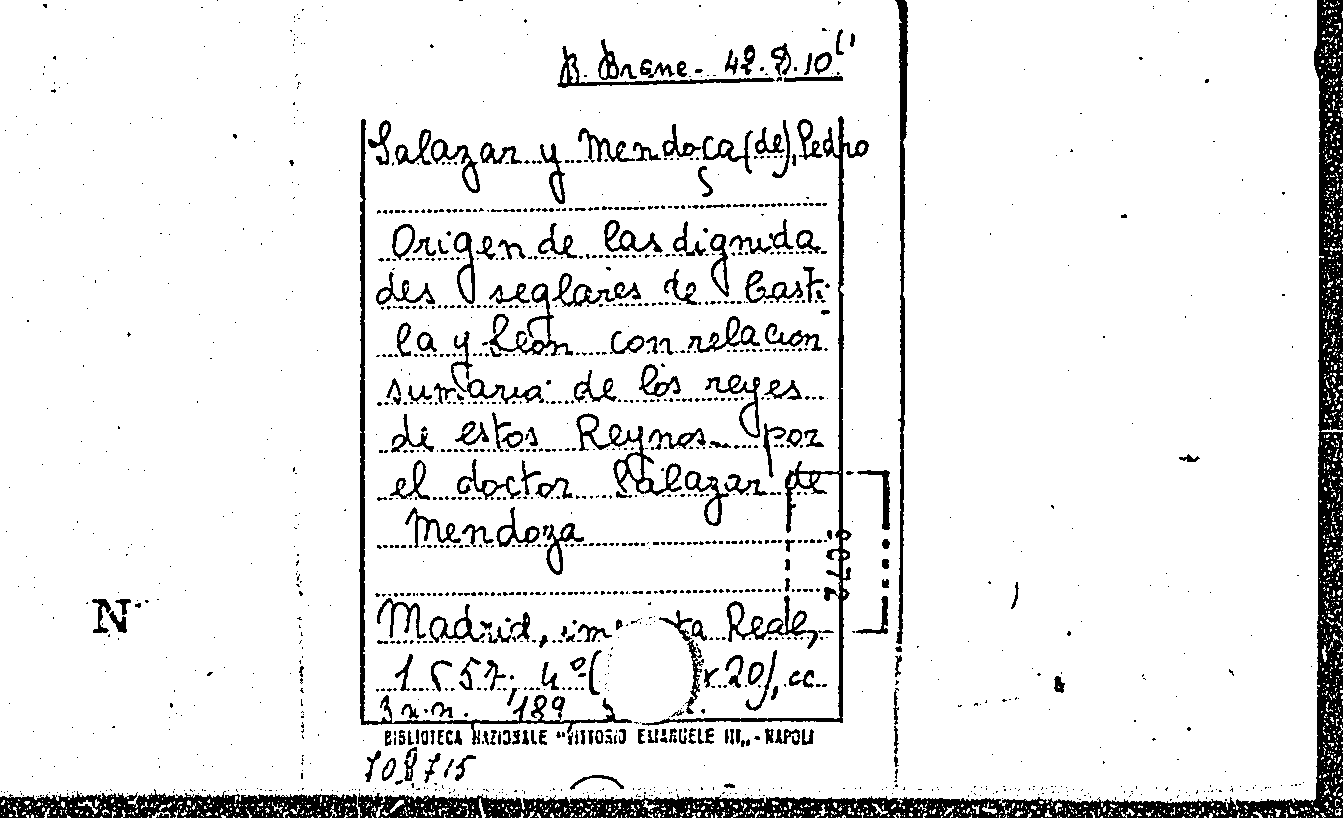 B. Brsne - 42. D. 10
Salazar y Mendoça (de), Pedro
Origen de las dignida
des seglares de Casti
lla y León con relacion
sumaria de los reyes
de estos Reynos por
el doctor Salazar de
Mendoza
Madrid, Reale,
1657, 4º ( x 20), cc.
3 n.n. 189,
BIBLIOTECA NAZIONALE "VITTORIO EMANUELE III" - NAPOLI
708715
N